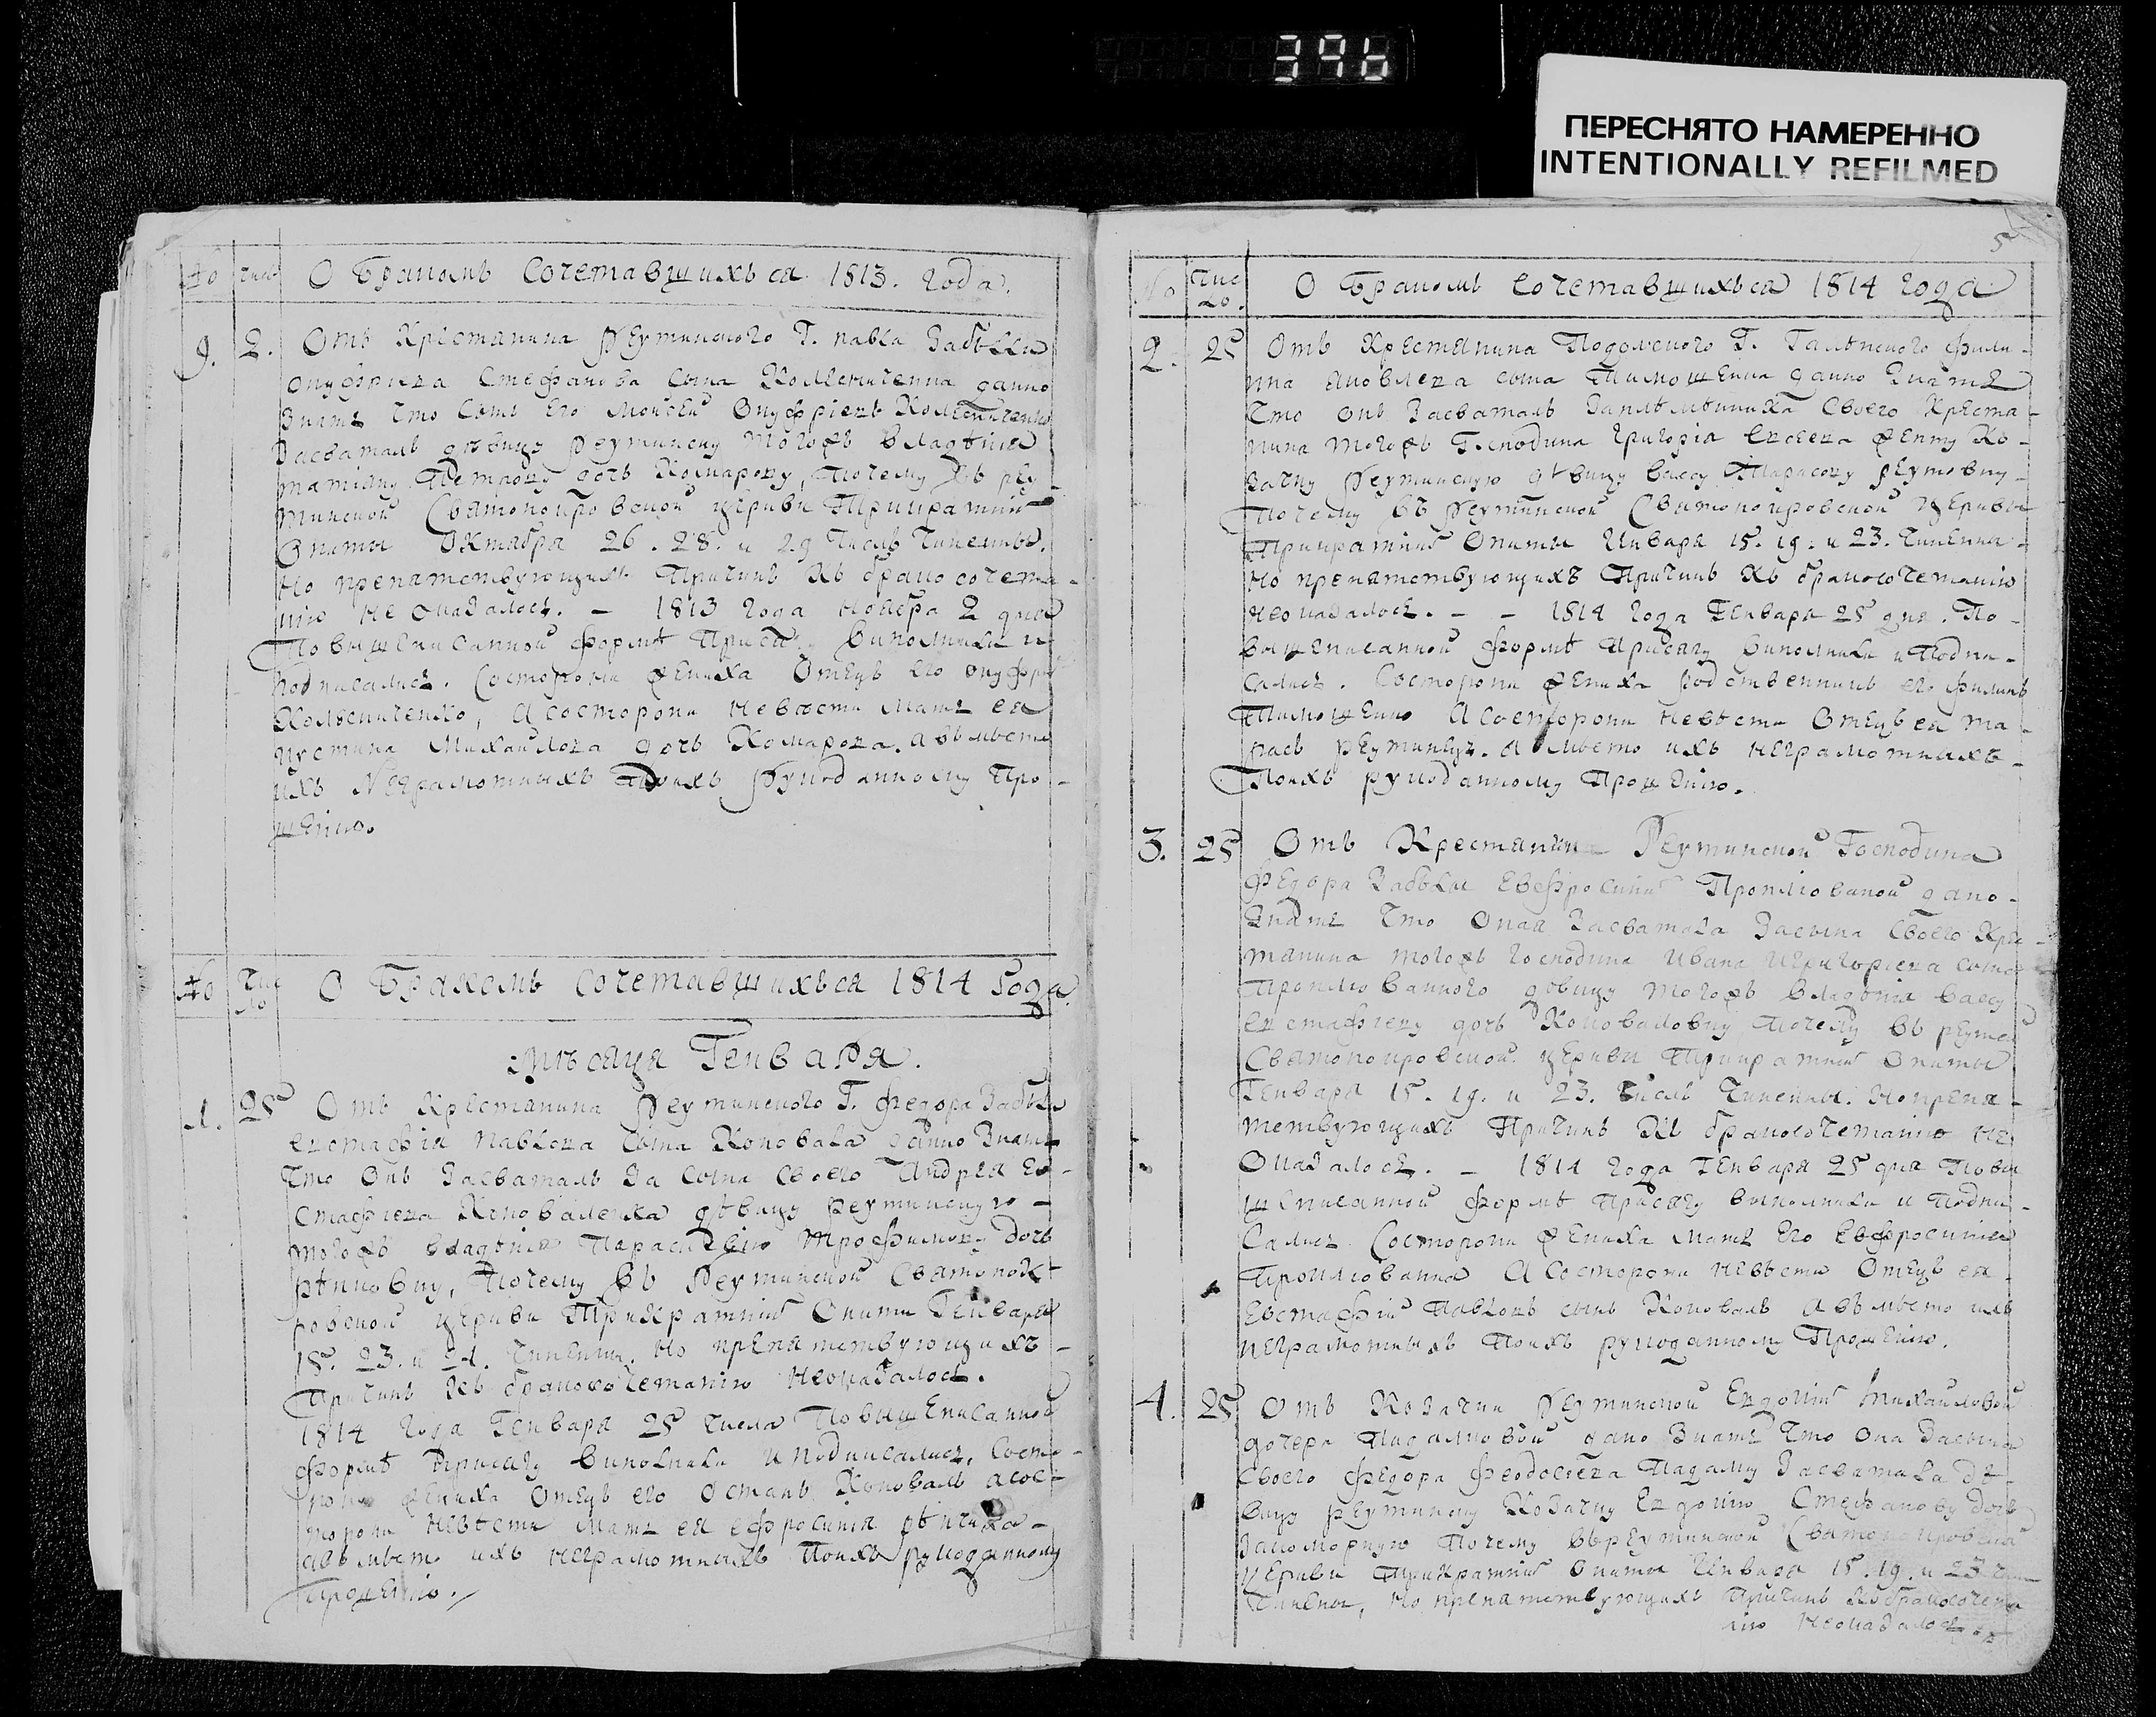 396
ПЕРЕСНЯТО НАМЕРЕННО
INTENTIONALLY REFILMED
№ число О Бракомъ Сочетавшихъся 1813. года.
9. 2. Отъ Крестянина Реутинского Г. павла Забѣлли
онуфриева Стефанова сына Колесниченка данно
Знать что сынъ его Мойсей Онуфріевъ Колесниченко
Засваталъ дѣвицу реутинску тогожъ владѣния
татіяну Петрову дочь Комарову, почему въ реу-
тинской Святопокровской церкви Трикратния
Опиты Октября 26. 28. и 29 Числъ Чинены.
Но препятствующихъ Причинъ къ брако сочета-
нию не оказалось. — 1813 года Ноября 2 дня
Повышеписанной формѣ Присягу Виполнили и
подписались. Состороны жениха Отецъ его онуфрий
Колѣсниченко, А состорони невѣсти Мать ея
иустина Михаилова дочь Комарова. авъмѣсто
ихъ Неграмотныхъ Поихъ Рукоданному Про-
шению.
№ Число О Бракомъ Сочетавшихъся 1814 Года.
Мѣсяца Генваря.
1. 25 Отъ Крестянина Реутинского Г. Федора Забѣлы
евстафія павлова сына Коновала данно Знать
Что Онъ Засваталъ За сына Своего Андрея Ев-
стафиева Коноваленка дѣвицу реутинскую
тогожъ владѣния Параскевію Трофимову дочь
рѣпковну, Почему Въ Реутинской Святопок-
ровской церкви Трикратния Опити Генваря
15. 23. и 24. Чинены. Но препятствующихъ
Причинъ къ бракосочетанию Неоказалось.
1814 года Генваря 25 числа Повышеписанной
формѣ Присягу виполнили и подписались, Состо-
рони жениха отецъ его Остапъ Коновалъ асос-
торони невѣсти Мать ея ефросиния рѣпчиха
авъмѣсто ихъ неграмотныхъ Поихъ рукоданному
прошению.
5
№ Число. О Бракомъ Сочетавшихъся 1814 года
2. 25 Отъ Крестянина Подолского Г. Галѣнского фили-
па яковлева сына Тимошенка данно Знать
Что онъ Засваталъ Заплѣмѣнника Своего Креста-
нина тогожъ Господина Григорія Евсеева женту Ко-
зачку Реутинскую дѣвицу васу Тарасову реутовну
Почему Въ Реутинской Святопокровской церквы
Трикратния Опиты Генваря 15. 19. и 23. Чинении.
Но препятствующихъ Причинъ къ бракосочетанию
неоказалось. - - 1814 года Генваря 25 дня. По-
вышеписанной формѣ присягу виполнили и Подпи-
сались. Состорони жениха родственникъ его филипъ
Тимошенко А состорони невѣсти Отецъ ея Та-
расъ реутинецъ. А вмѣсто ихъ неграмотныхъ
Поихъ рукоданному Прошению.
3. 25 Отъ Крестянки Реутинской Господина
Федора Забѣлы Евфросинии данно
Знать Что Оная Засватала Засына Своего Крес-
тянина тогожъ господина Ивана Григориева сына
дѣвицу тогожъ владѣнія васу
евстафиеву дочь Коноваловну, почему въ реутин
Святопокровской церкви Трикратния опиты
Генваря 15. 19. и 23. Числъ Чинены. Но препя-
тствующихъ Причинъ Къ бракосочетанию Не
Оказалось. - 1814 года Генваря 25 дня Повы
шеписанной формѣ присягу выполнили и Подпи-
сались Состорони жениха мать Его Евфросиния
А состорони невѣсти Отецъ ея
Евстафій Павловъ сынъ Коновалъ авъмѣсто ихъ
неграмотныхъ Поихъ рукоданному Прошению.
4. 25 Отъ Козачки Реутинской Евдокии Михайловой
дочери Падалковой дано Знать Что она Засына
Своего Федора феодосиева Падалку Засватала дѣ-
вицу реутинску Козачку Евдокию Стефанову дочь
Почему Въреутинской Святопокровской
церкви Трикратния опиты Генваря 15. 19. и 23 чи
Чинены, Но препятствующихъ Причинъ Кобракосочета
нию Неоказалось.